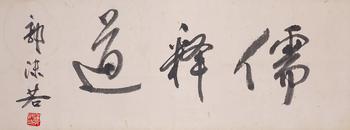 儒释道
郭沫若